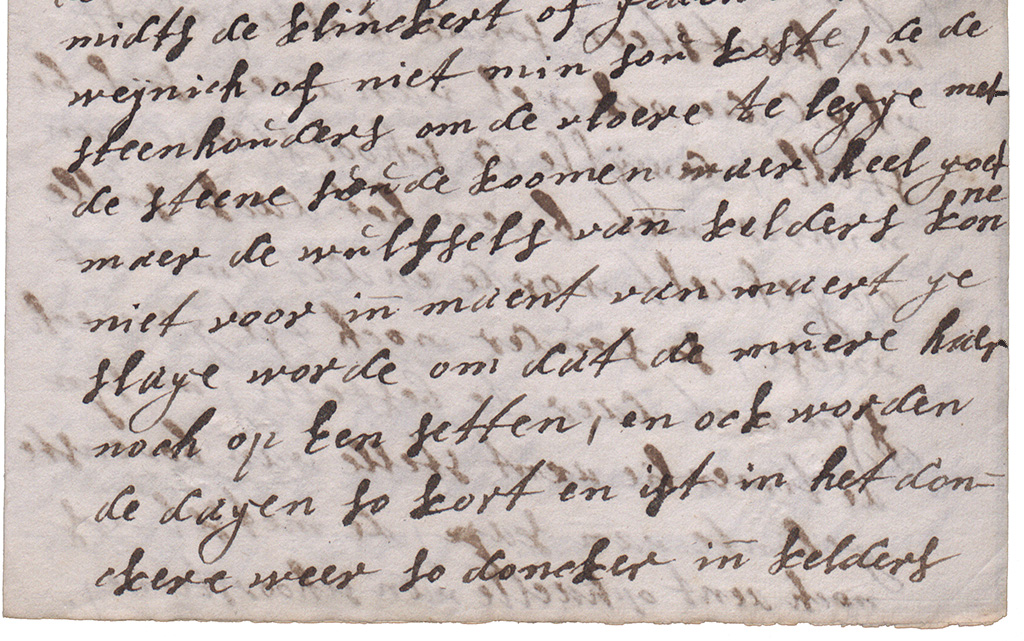 midts de klinckert of
weijnich of niet min sou koste, de de
steenhouders om de vloere te legge met
de steene soude koomen maer heel goet
maer de wulfsels vañ kelders konne
niet voor iñ maent van maert ge
slage worde om dat de muere haer
noch op ken setten, en ock worden
de dagen so kort en ist in het don=
ckere weer so doncker iñ kelders